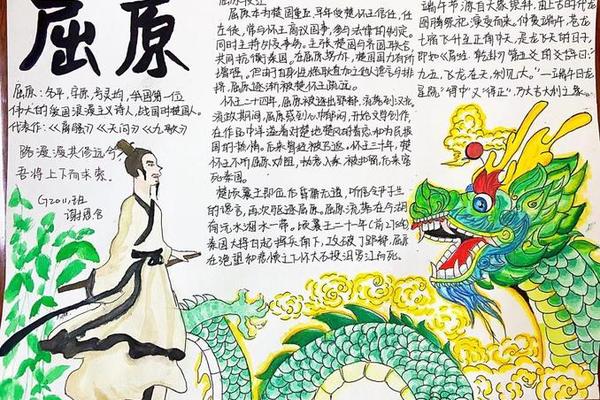 屈原
屈原：名平，字原，号灵均，中国第一位
伟大的爱国浪漫主义诗人，战国时楚国人。
代表作：《离骚》《天问》《九歌》
路漫漫其修远兮
吾将上下而求索。
G2011班
屈原本为楚国重臣，早年受楚怀王信任，任
左徒，常与怀王商议国事，参与法律的制定。
同时主持外交事务。主张楚国与齐国联合，
共同抗衡秦国。在屈原努力下，楚国国力有所
增强。但由于自身性格耿直加之他人谗言与排
挤，屈原逐渐被楚怀王疏远。
怀王二十四年，屈原被逐出郢都，流落到汉北。
流放期间，屈原感到心中郁闷，开始文学创作，
在作品中洋溢着对楚地楚风的眷恋和为民报
国的热情。后来曾经被召返。怀王三十年，楚
怀王不听屈原劝阻，
死秦国。
楚顷襄王即位
的谗言，再次驱逐屈原。屈原流落在今湖
南沅水、湘水一带。顷襄王二十一年（前278）
秦国大将白起挥兵南下，攻破了郢都，屈原
在绝望和悲愤之下怀大石投汨罗江而死。
端午节，源自天象崇拜，由上古时代龙
图腾祭祀演变而来。仲夏端午，苍龙
七宿飞升至正南中天，是龙飞天的日子，
即如《易经·乾卦》第五爻的爻辞曰：“
九五，飞龙在天，利见大人。”端午日龙
星既“得中”又“得正”，乃大吉大利之象。